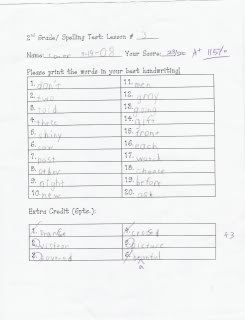 2nd Grade/ Spelling Test: Lesson # 3
Name: 9-19-08 Your Score: 23/20 A+ 115%
Please print the words in your best handwriting!
1. don't 11. men
2. 12. gray
3. told 13. gone
4. these 14. gift
5. shiny 15. front
6. 16. each
7. past 17.
8. other 18. choose
9. night 19. before
10. new 20. ask
Extra Credit (6pts.):
1. 4. crowd
2. visitor 5. picture
3. covered 6. +3